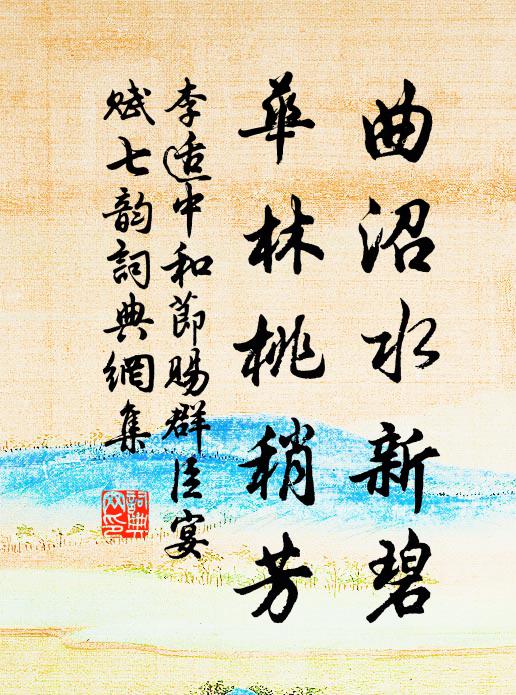 曲沼水新碧
華林桃稍芳
李适中和節賜群臣宴
賦七韵詞典網集
詞典网印